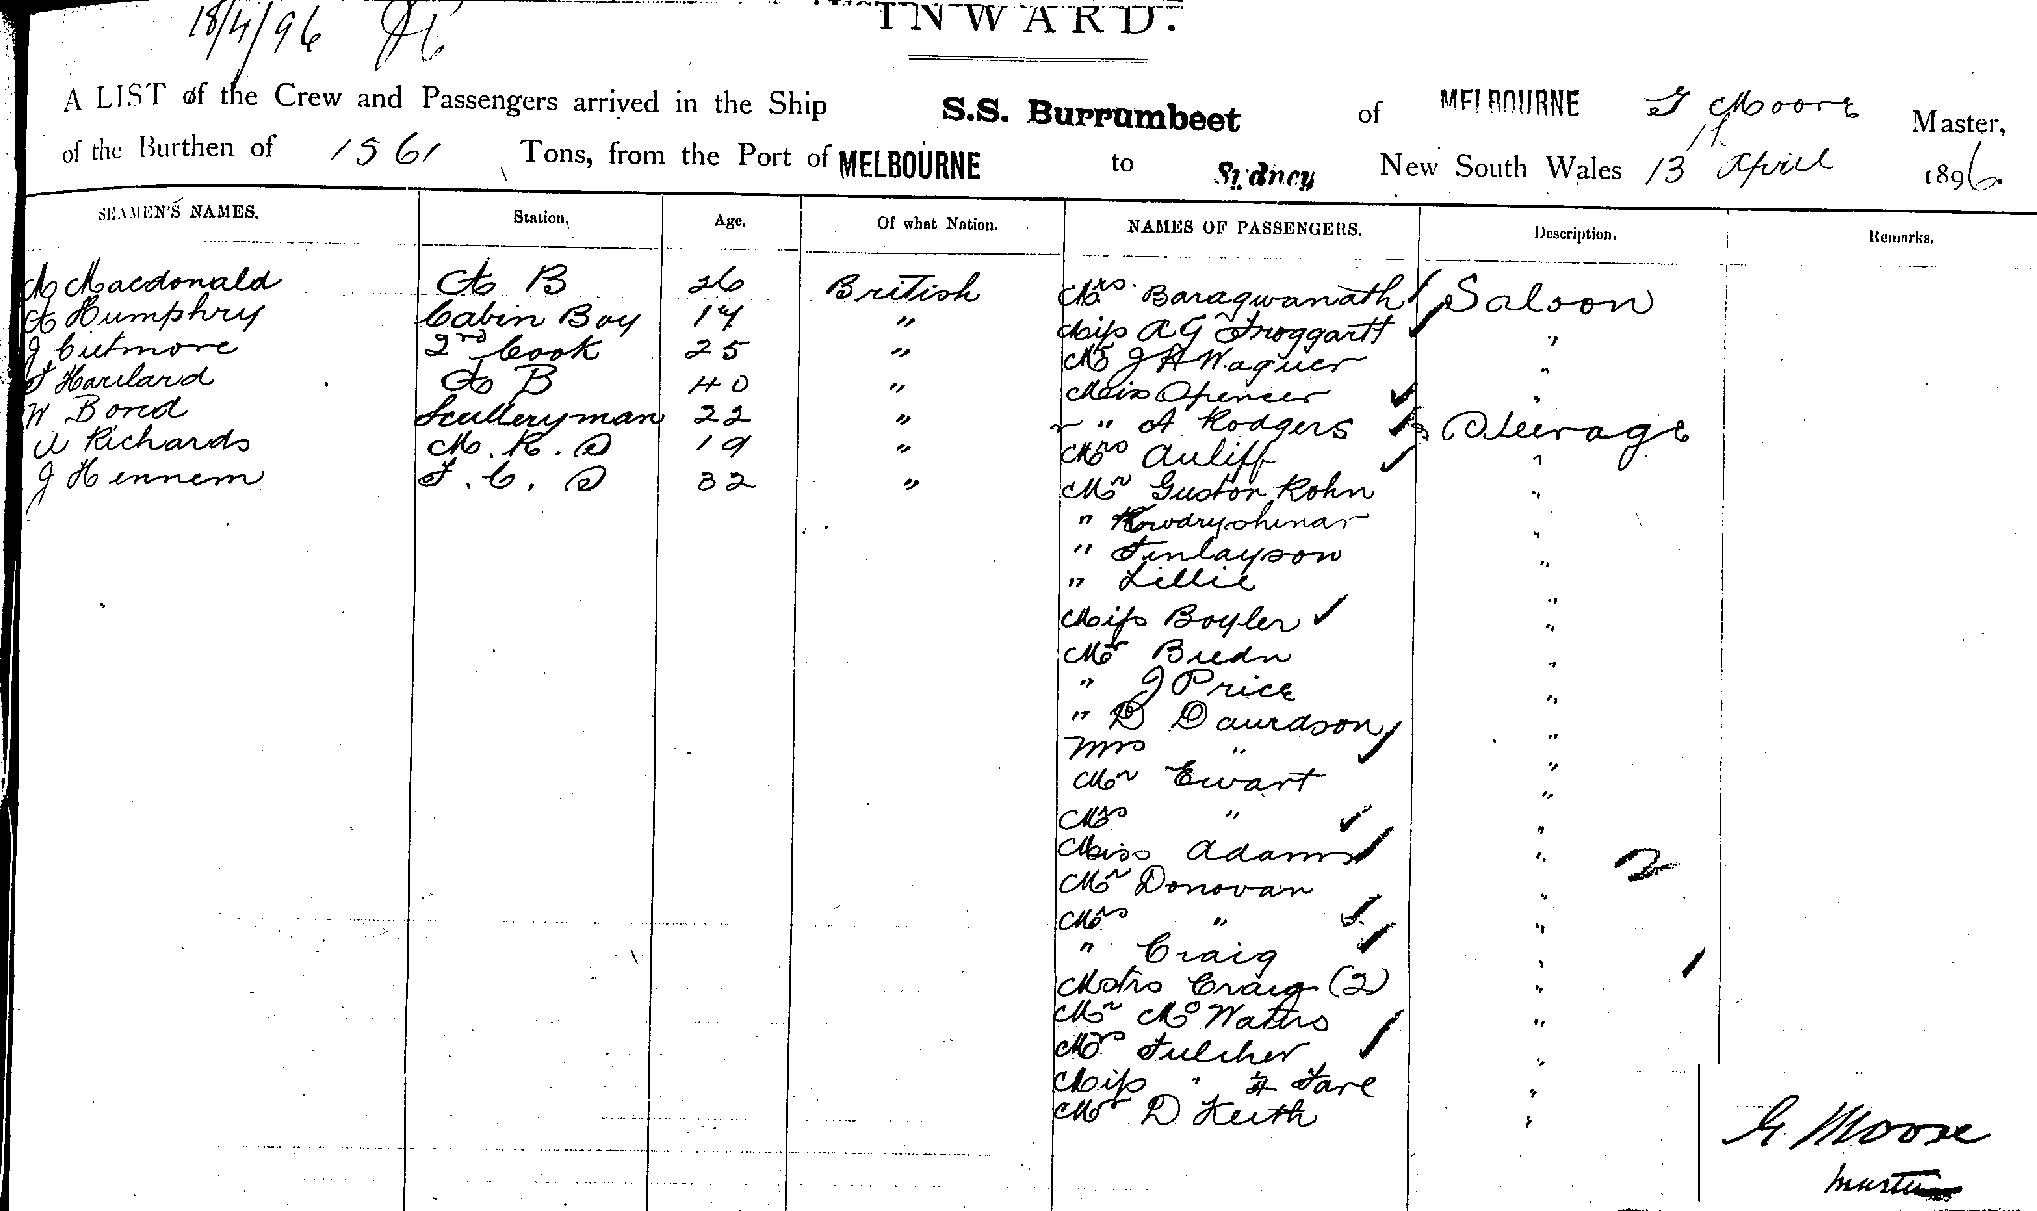 18/4/96
INWARD.
A LIST of the Crew and Passengers arrived in the Ship S.S. Burrumbeet of MELBOURNE G Moore Master,
of the Burthen of 1561 Tons, from the Port of MELBOURNE to Sydney New South Wales 13 April 1896.
SEAMEN'S NAMES. Station. Age. Of what Nation. NAMES OF PASSENGERS. Description. Remarks.
A Macdonald A B 26 British Mrs. Baragwanath Saloon
A Humphry Cabin Boy 17 " Miss A G Froggartt "
J Cutmore 2nd Cook 25 " Mr J A Wagner "
A B 40 " Miss Spencer "
W Bored Sculleryman 22 " " A Rodgers Steerage
Richards M. R. S 19 " Mrs Auliff "
J Hennem F. C. S 32 " Mr Gustor Kohn "
" "
" Finlayson "
" Lillie "
Miss Boyler "
Mr Bredn "
" J Price "
" D Davidson "
Mrs " "
Mr Ewart "
Mrs " "
Miss Adams " 2
Mr Donovan "
Mrs " "
" Craig "
Mstrs Craig (2) "
Mr McWaters "
Mrs Fulcher "
Miss " ½ Fare "
Mr D Keith "
G. Moore
Master